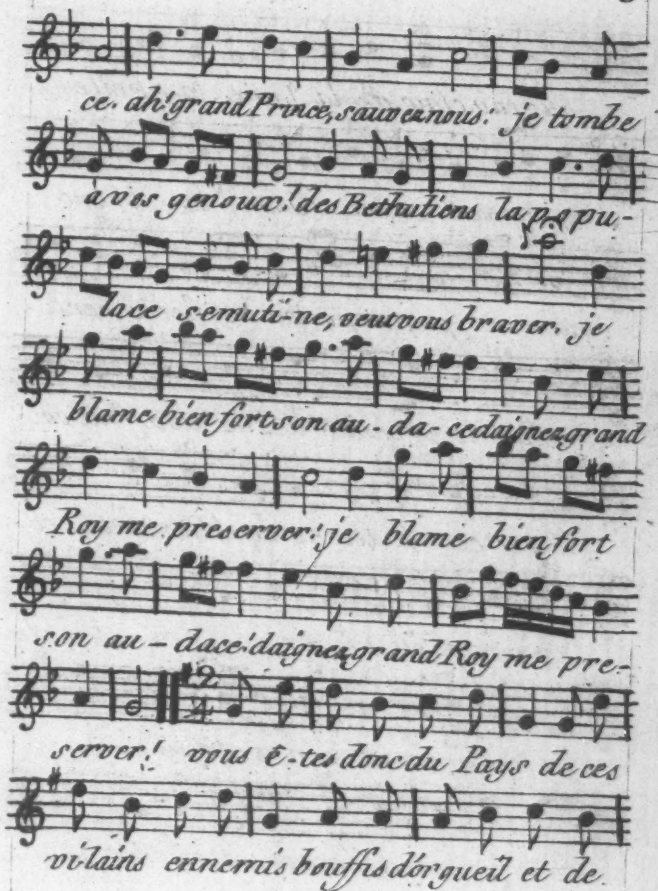 ce. ah! grand Prince, sauvez nous: je tombe
à vos genoux! des Bethuliens la popu-
lace s'emuti-ne, veut vous braver. je
blame bien fort son au-da-ce daignez grand
Roy me preserver! je blame bien fort
son au-dace! daignez grand Roy me pre-
server! vous ê-tes donc du Pays de ces
vi-lains ennemis bouffis d'orgueil et de